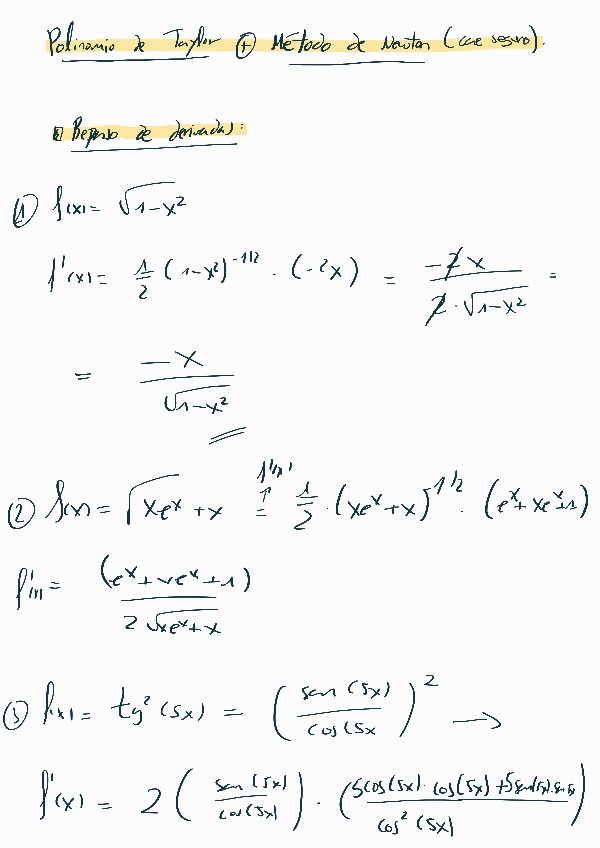 Polinomio de Taylor ⊕ Método de Newton (cae seguro).
Repaso de derivadas:
① f(x) = √(1-x²)
f'(x) = 1/2 (1-x²)^(-1/2) · (-2x) = -2x / (2·√(1-x²)) =
= -x / √(1-x²)
② f(x) = √(xeˣ+x) = 1/2 · (xeˣ+x)^(-1/2) · (eˣ+xeˣ+1)
f'(x) = (eˣ+xeˣ+1) / (2√(xeˣ+x))
③ f(x) = tg²(5x) = (sen(5x) / cos(5x)² →
f'(x) = 2 (sen(5x) / cos(5x)) · (5cos(5x)·cos(5x)+5sen(5x)·sen 5x / cos²(5x))